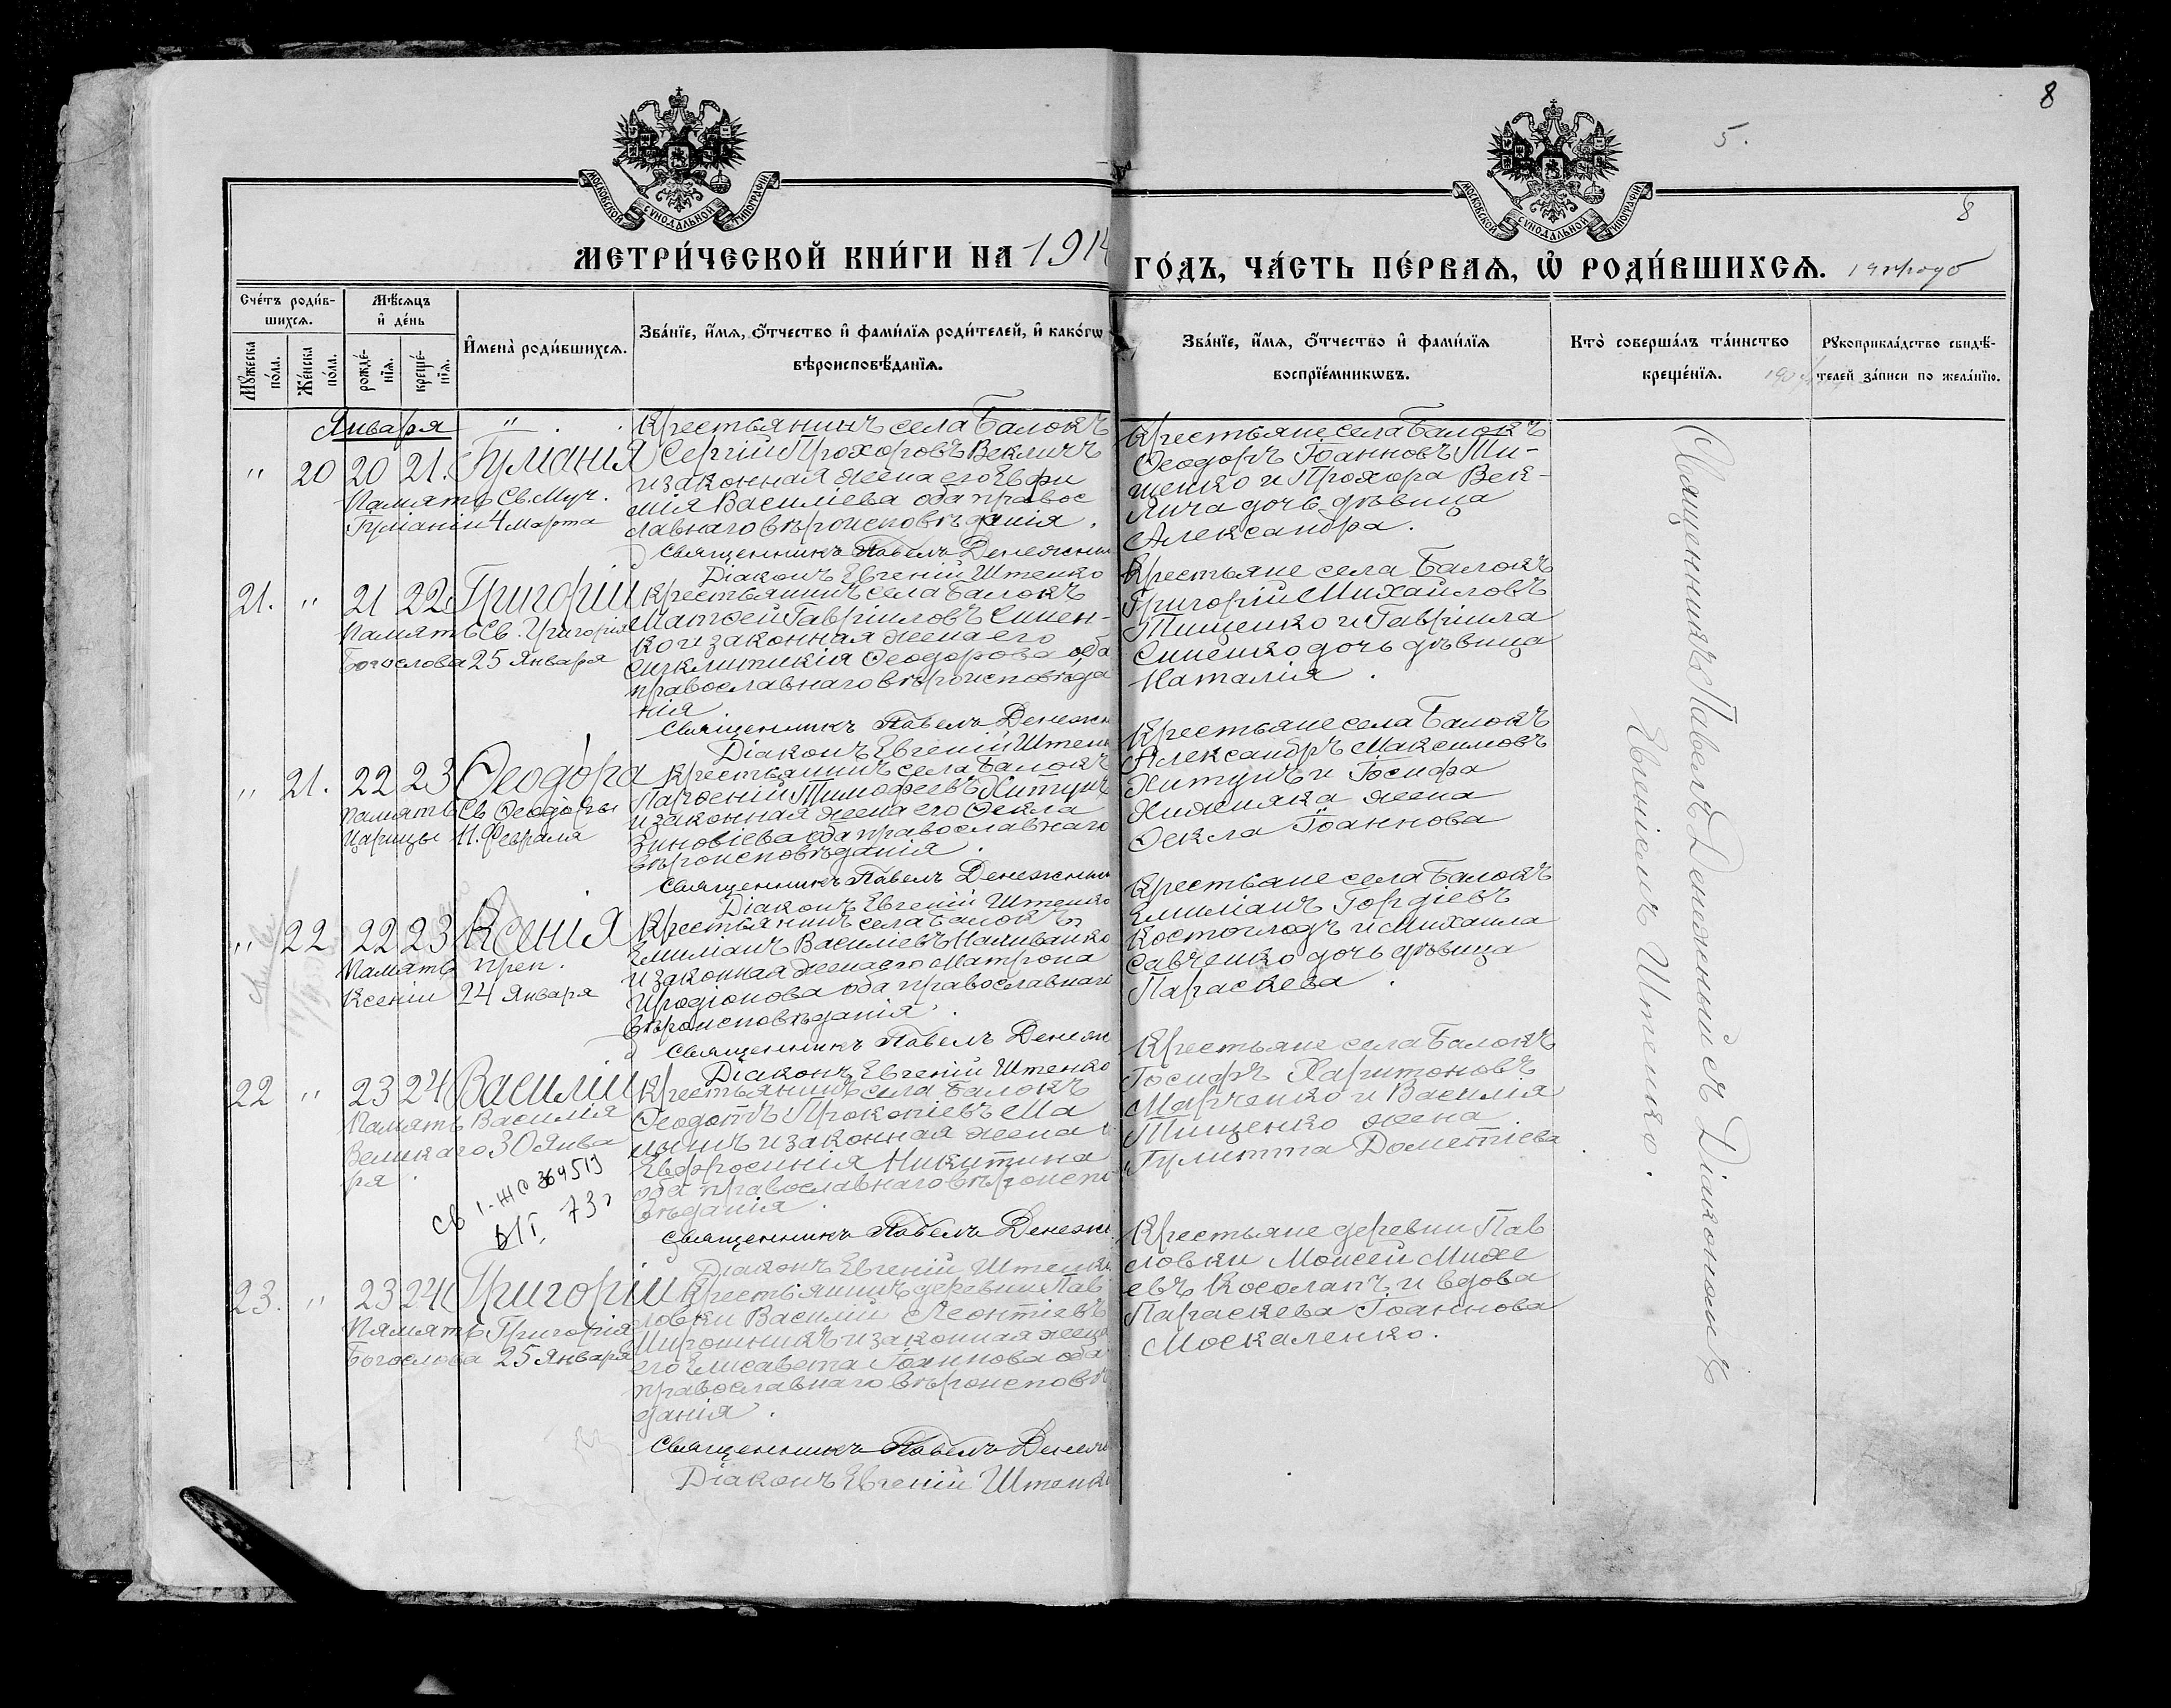 8
5.
МОСКОВСКОЙ СУНОДАЛЬНОЙ ТИПОГРАФІИ
МОСКОВСКОЙ СУНОДАЛЬНОЙ ТИПОГРАФІИ
8
МЕТРИ́ЧЕСКОЙ КНИ́ГИ НА 1914
ГО́ДЪ, ЧА́СТЬ ПЕ́РВАѦ, Ѽ РОДИ́ВШИХСѦ.
Сче́тъ роди́в-
шихсѧ.
Мѣ́сѧцъ
и҆ де́нь
Мꙋ́жеска
по́ла.
Же́нска
по́ла.
рожде́-
нїѧ.
креще́-
нїѧ.
И҆мена̀ роди́вшихсѧ.
Зва́нїе, и҆́мѧ, ѻ҆́тчество и҆ фами́лїѧ роди́телей, и҆ како́гѡ
вѣроисповѣ́данїѧ.
Зва́нїе, и҆́мѧ, ѻ҆́тчество и҆ фами́лїѧ
воспрїе́мникѡвъ.
Кто̀ соверша́лъ та́инство
креще́нїѧ.
Рꙋкоприкла́дство свидѣ́-
телей за́писи по жела́нїю.
Января
" 20 20 21. Гуліанія
Память Св. Муч.
Гуліаніи 4 Марта
Крестьянинъ села Балокъ
Сергій Прохоровъ Векличъ
и законная жена его Евфи
мія Василіева оба правос
лавнаго вѣроисповѣданія.
Священникъ Павелъ Денежный
Діаконъ Евгеній Штепко
Крестьяне села Балокъ
Ѳеодоръ Іоанновъ Ти-
щенко и Прохора Век-
лича дочь дѣвица
Александра.
21. " 21 22 Григорій
Память Св. Григорія
Богослова 25 Января
Крестьянинъ села Балокъ
Матѳей Гавріиловъ Синен-
ко и законная жена его
Синклитикія Ѳеодорова оба
православнаго вѣроисповѣда
нія.
Священникъ Павелъ Денежн
Діаконъ Евгеній Штепк
Крестьяне села Балокъ
Григорій Михайловъ
Тищенко и Гавріила
Синенко дочь дѣвица
Наталія.
" 21. 22 23 Ѳеодора
Память Св Ѳеодоры
Царицы 11. Февраля
Крестьянинъ села Балокъ
Парѳеній Тимофеевъ Хитунъ
и законная жена его Ѳекла
Зиновіева оба православнаго
вѣроисповѣданія.
Священникъ Павелъ Денежный
Діаконъ Евгеній Штепко
Крестьяне села Балокъ
Александръ Максимовъ
Хитунъ и Іосифа
Хижняка жена
Ѳекла Іоаннова
" 22 22 23 Ксенія
Память преп.
Ксеніи 24 Января
Крестьянинъ села Балокъ
Емиліанъ Василіевъ Наливайко
и законная жена его Матрона
Иродіонова оба православнаго
вѣроисповѣданія.
Священникъ Павелъ Денежн
Діаконъ Евгеній Штепко
Крестьяне села Балокъ
Емиліанъ Гордіевъ
Костоглодъ и Михаила
Савченко дочь дѣвица
Параскева.
22 " 23 24 Василій
Память Василія
Великаго 30 Янва
ря.
Крестьянинъ села Балокъ
Ѳеодотъ Прокопіевъ Ма
и законная жена
Евфросинія Никитина
оба православнаго вѣроиспо
вѣданія.
Священникъ Павелъ Денежн
Діаконъ Евгеній Штепко
Крестьяне села Балокъ
Іосифъ Харитоновъ
Марченко и Василія
Тищенко жена
Гулитта Дометіева
23. " 23 24 Григорій
Память Григорія
Богослова 25 Января
Крестьянинъ деревни Пав
ловки Василій Леонтіевъ
Мирошникъ и законная жена
его Елисавета Іоаннова оба
православнаго вѣроисповѣ
данія.
Священникъ Павелъ Денежн
Діаконъ Евгеній Штепк
Крестьяне деревни Пав
ловки Моисей Михе
евъ Косолапъ и вдова
Параскева Іоаннова
Москаленко.
Священникъ Павелъ Денежный съ Діакономъ
Евгеніемъ Штепко.